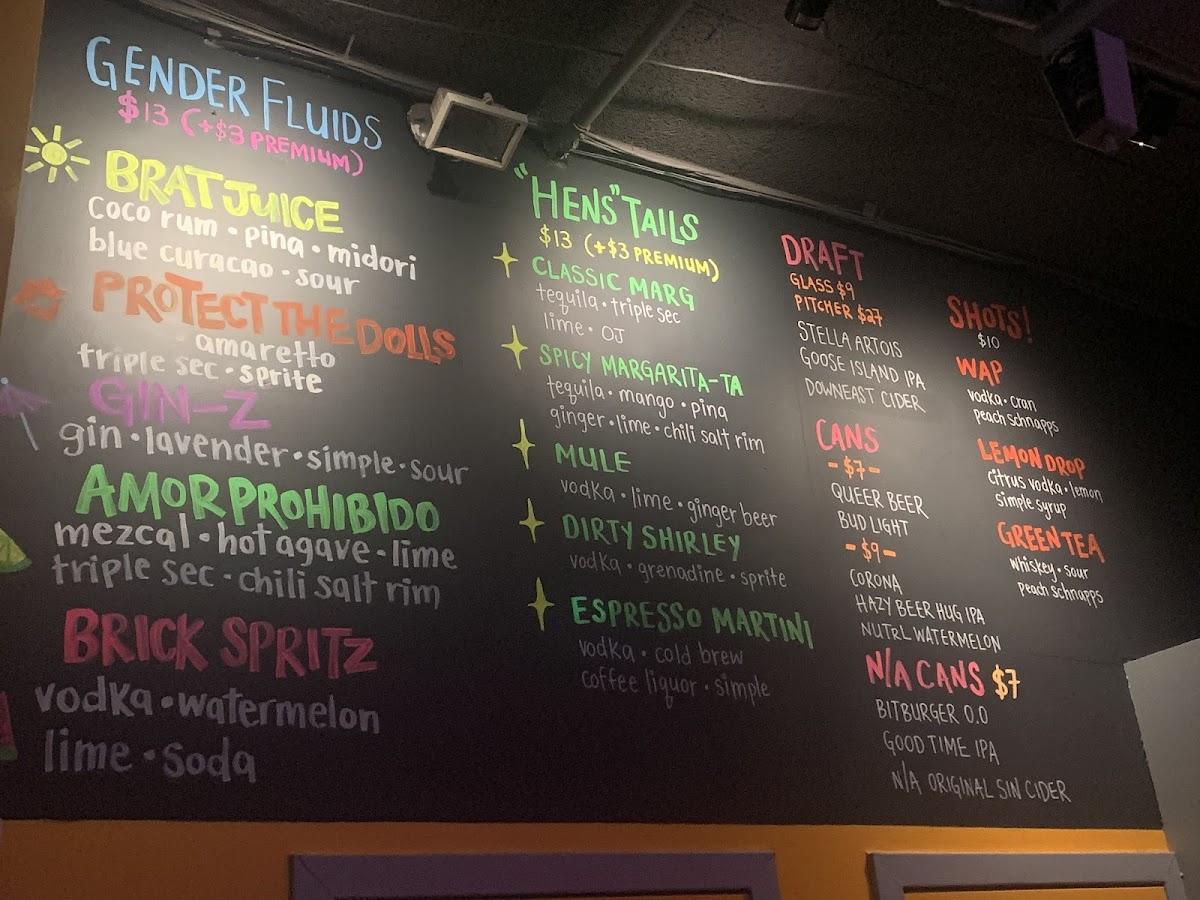 GENDER FLUIDS
$13 (+$3 PREMIUM)
BRAT JUICE
coco rum • pina • midori
blue curacao • sour
PROTECT THE DOLLS
amaretto
triple sec • sprite
GIN-Z
gin • lavender • simple • sour
AMOR PROHIBIDO
mezcal • hot agave • lime
triple sec • chili salt rim
BRICK SPRITZ
vodka • watermelon
lime • soda
"HENS" TAILS
$13 (+$3 PREMIUM)
CLASSIC MARG
tequila • triple sec
lime • OJ
SPICY MARGARITA-TA
tequila • mango • pina
ginger • lime • chili salt rim
MULE
vodka • lime • ginger beer
DIRTY SHIRLEY
vodka • grenadine • sprite
ESPRESSO MARTINI
vodka • cold brew
coffee liquor • simple
DRAFT
GLASS $9
PITCHER $27
STELLA ARTOIS
GOOSE ISLAND IPA
DOWNEAST CIDER
CANS
- $7 -
QUEER BEER
BUD LIGHT
- $9 -
CORONA
HAZY BEER HUG IPA
NUTRL WATERMELON
N/A CANS $7
BITBURGER 0.0
GOOD TIME IPA
N/A ORIGINAL SIN CIDER
SHOTS!
$10
WAP
vodka • cran
peach schnapps
LEMON DROP
citrus vodka • lemon
simple syrup
GREEN TEA
whiskey • sour
peach schnapps